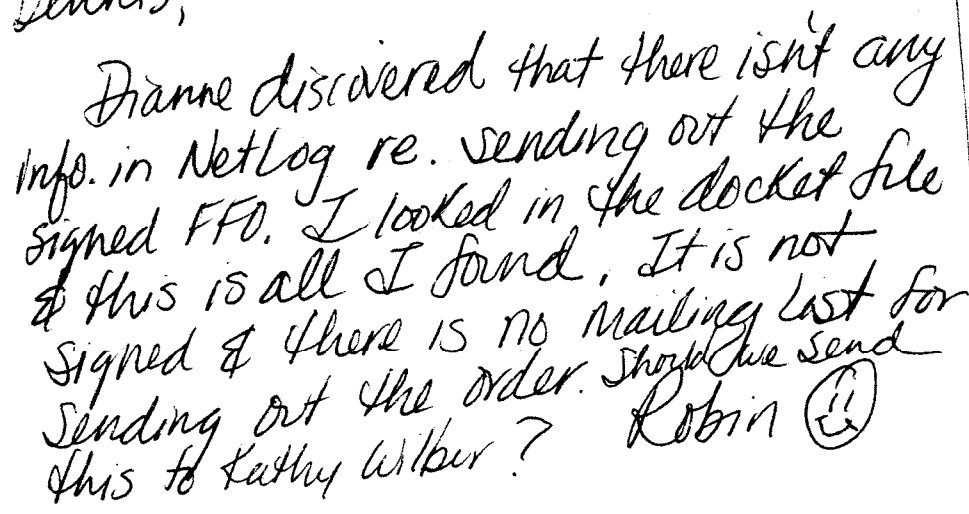 Dennis,
Dianne discovered that there isn't any
info. in NetLog re. sending out the
signed FFO. I looked in the docket file
& this is all I found. It is not
signed & there is no mailing list for
sending out the order. Should we send
this to Kathy Wilbur? Robin